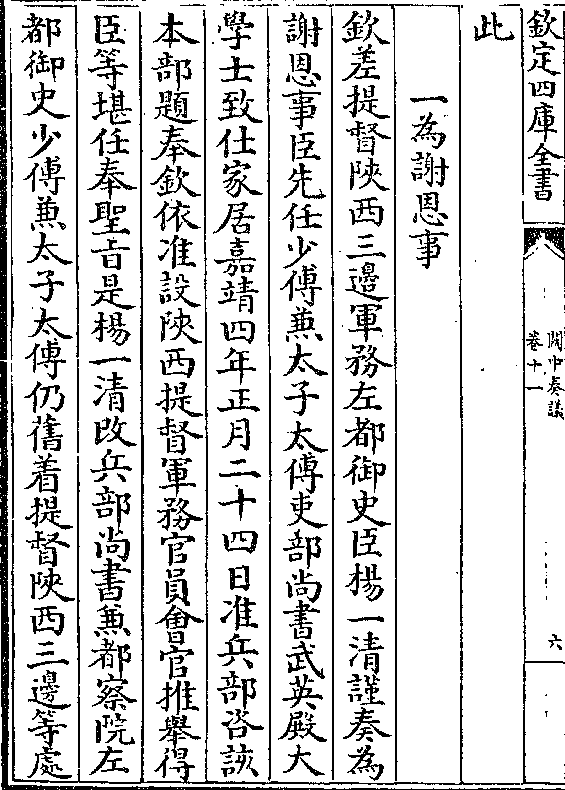 欽定四庫全書
關中奏議
卷十一
六
此
一為謝恩事
欽差提督陜西三邊軍務左都御史臣楊一清謹奏為
謝恩事臣先任少傅兼太子太傅吏部尚書武英殿大
學士致仕家居嘉靖四年正月二十四日准兵部咨該
本部題奉欽依准設陜西提督軍務官員會官推舉得
臣等堪任奉聖旨是楊一清改兵部尚書兼都察院左
都御史少傅兼太子太傅仍舊着提督陜西三邊等處